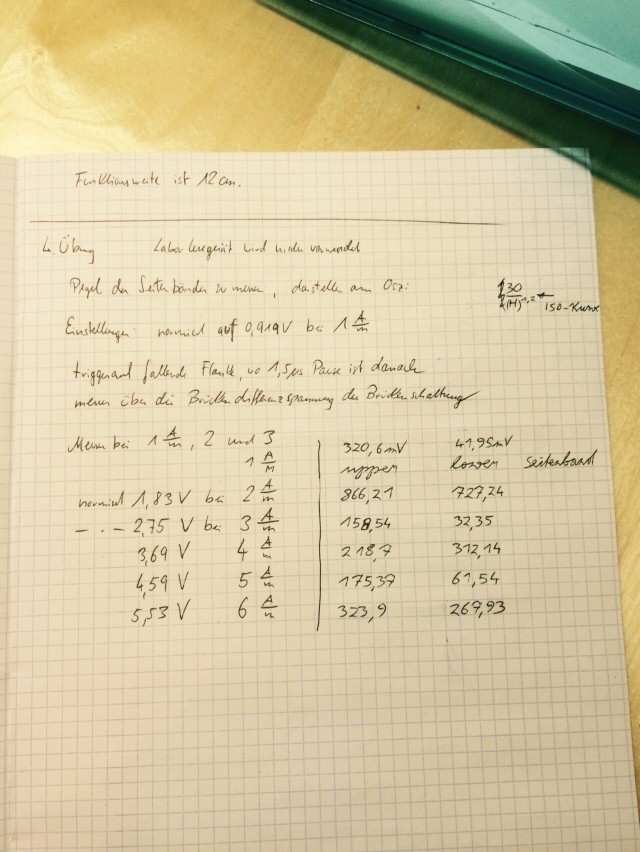 Funktionsweite ist 12cm.
4. Übung Labor lesegerät wird wieder verwendet
Pegel der Seitenbänder zu messen, darstellen am Oszi
30
(H)^1,2 ← ISO-Kurve
Einstellungen: normiert auf 0,919V bei 1 A/m
triggern auf fallende Flanke, wo 1,5µs Pause ist danach
messen über die Brückendifferenzspannung der Brückenschaltung
Messen bei 1 A/m, 2 und 3 320,6mV 41,95mV
1 A/m upper lower Seitenband
normiert 1,83V bei 2 A/m 866,21 727,24
— . — 2,75 V bei 3 A/m 158,54 32,35
3,69 V 4 A/m 218,7 312,14
4,59 V 5 A/m 175,37 61,54
5,53 V 6 A/m 323,9 267,93